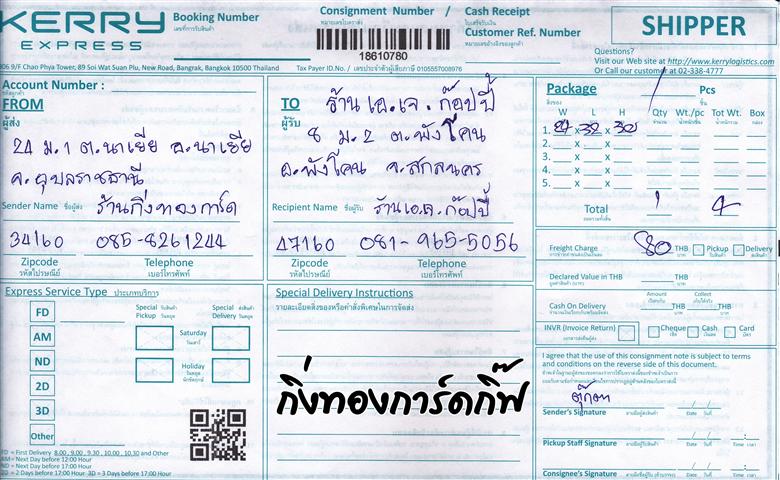 KERRY
EXPRESS
Booking Number
เลขที่การรับสินค้า
Consignment Number /
หมายเลขใบตราส่ง
Cash Receipt
ใบเสร็จรับเงิน
Customer Ref. Number
หมายเลขอ้างอิงของลูกค้า
SHIPPER
18610780
Questions?
Visit our Web site at http://www.kerrylogistics.com
Or Call our customer at 02-338-4777
906 9/F Chao Phya Tower, 89 Soi Wat Suan Plu, New Road, Bangrak, Bangkok 10500 Thailand
Tax Payer ID.No. / เลขประจำตัวผู้เสียภาษี 0105557008976
Account Number :
FROM
ผู้ส่ง
24 ม.1 ต.นาเยีย อ.นาเยีย
จ.อุบลราชธานี
Sender Name ชื่อผู้ส่ง ร้านกิ่งทองการ์ด
34160 085-8261244
Zipcode Telephone
รหัสไปรษณีย์ เบอร์โทรศัพท์
TO ร้าน เอ.เจ. ก๊อปปี้
ผู้รับ
8 ม.2 ต.พังโคน
อ.พังโคน จ.สกลนคร
Recipient Name ชื่อผู้รับ ร้านเอ.เจ.ก๊อปปี้
47160 081-965-5056
Zipcode Telephone
รหัสไปรษณีย์ เบอร์โทรศัพท์
Package Pcs
สิ่งของ ชิ้น
W L H Qty Wt./pc Tot Wt. Box
1. x 32 x 30
2. x x
3. x x
4. x x
5. x x
Total 1 4
Freight Charge 80 THB Pickup Delivery
Declared Value in THB
Amount Collect
Cash On Delivery THB THB
INVR (Invoice Return) Cheque Cash Card
I agree that the use of this consignment note is subject to terms
and conditions on the reverse side of this document.
Sender's Signature ลายมือชื่อผู้ส่ง Date วันที่
Pickup Staff Signature Date วันที่ Time เวลา
Consignee's Signature Date วันที่ Time เวลา
Express Service Type ประเภทบริการ
FD
AM
ND
2D
3D
Other
Special Pickup
Special Delivery
Saturday
วันเสาร์
Holiday
วันหยุด
นักขัตฤกษ์
FD = First Delivery 8.00 , 9.00 , 9.30 , 10.00 , 10.30 and Other
AM = Next Day before 12:00 Hour
ND = Next Day before 17:00 Hour
2D = 2 Days before 17:00 Hour 3D = 3 Days before 17:00 Hour
Special Delivery Instructions
รายละเอียดสิ่งของหรือคำสั่งพิเศษในการจัดส่ง
กิ่งทองการ์ดกิ๊ฟ